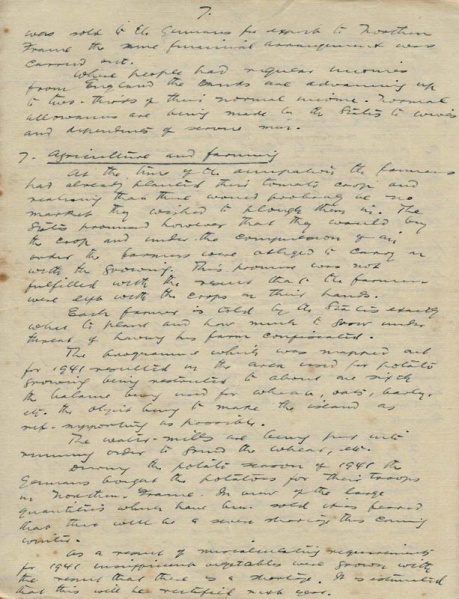 7.
was sold to the Germans for export to Northern
France the same financial arrangement was
carried out.
Where people had regular incomes
from England the banks are advancing up
to two-thirds of their normal income. Normal
allowances are being made by the States to wives
and dependents of service men.
7. Agriculture and farming
At the time of the occupation the farmers
had already planted their tomato crop and
realising that there would probably be no
market they wished to plough them in. The
States promised however that they would buy
the crop and under the compulsion of an
order the farmers were obliged to carry on
with the growing. This promise was not
fulfilled with the result that the farmers
were left with the crops on their hands.
Each farmer is told by the States exactly
what to plant and how much to grow under
threat of having his farm confiscated.
The programme which was mapped out
for 1941 resulted in the area used for potato
growing being restricted to about one sixth
the balance being used for wheat, oats, barley,
etc. the object being to make the island as
self-supporting as possible.
The water-mills are being put into
running order to grind the wheat, etc.
During the potato season of 1941 the
Germans bought the potatoes for their troops
in Northern France. In view of the large
quantities which have been sold it is feared
that there will be a severe shortage this coming
winter.
As a result of miscalculating requirements
for 1941 insufficient vegetables were grown with
the result that there is a shortage. It is estimated
that this will be rectified next year.